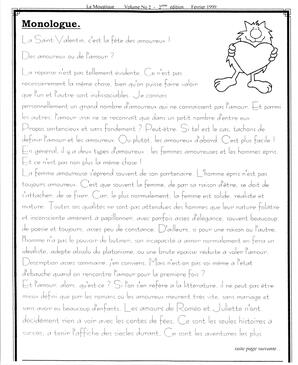 Le Monologue Volume No 2 - 2ème édition Février 1999
Monologue.
La Saint-Valentin, c'est la fête des amoureux !
Des amoureux ou de l'amour ?
La réponse n'est pas tellement évidente. Ce n'est pas
nécessairement la même chose, bien qu'on puisse faire valoir
que l'un et l'autre sont indissociables. Je connais
personnellement un grand nombre d'amoureux qui ne connaissent pas l'amour. Et parmi
les autres, l'amour vrai ne se reconnaît que dans un petit nombre d'entre eux.
Propos sentencieux et sans fondement ? Peut-être. Si tel est le cas, tâchons de
définir l'amour et les amoureux. Ou plutôt, les amoureux d'abord. C'est plus facile !
En général, il y a deux types d'amoureux : les femmes amoureuses et les hommes épris.
Et ce n'est pas non plus la même chose !
La femme amoureuse s'éprend souvent de son partenaire. L'homme épris n'est pas
toujours amoureux. C'est que souvent la femme, de par sa raison d'être, se doit de
s'attacher, de se fixer. Car, le plus normalement, la femme est solide, réaliste et
mature. Toutes ces qualités ne sont pas attendues des hommes que leur nature folâtre
et inconsciente amènent à papillonner, avec parfois assez d'élégance, souvent beaucoup
de poésie et toujours, assez peu de constance. D'ailleurs, si pour une raison ou l'autre,
l'homme n'a pas le pouvoir de butiner, son incapacité à aimer normalement en fera un
idéaliste, adepte absolu du platonisme, ou une brute épaisse réduite à violer l'amour.
Description assez sommaire, j'en conviens. Mais n'est-on pas soi-même à l'état
d'ébauche quand on rencontre l'amour pour la première fois ?
Et l'amour, alors, qu'est-ce ? Si l'on s'en réfère à la littérature, il ne peut pas être
mieux défini que par les romans où les amoureux meurent très vite, sans mariage et
sans avoir eu beaucoup d'enfants. Les amours de Roméo et Juliette n'ont
décidément rien à voir avec les contes de fées. Ce sont les seules histoires à
succès, à tenir l'affiche des siècles durant. Ce sont les aventures les plus
suite page suivante